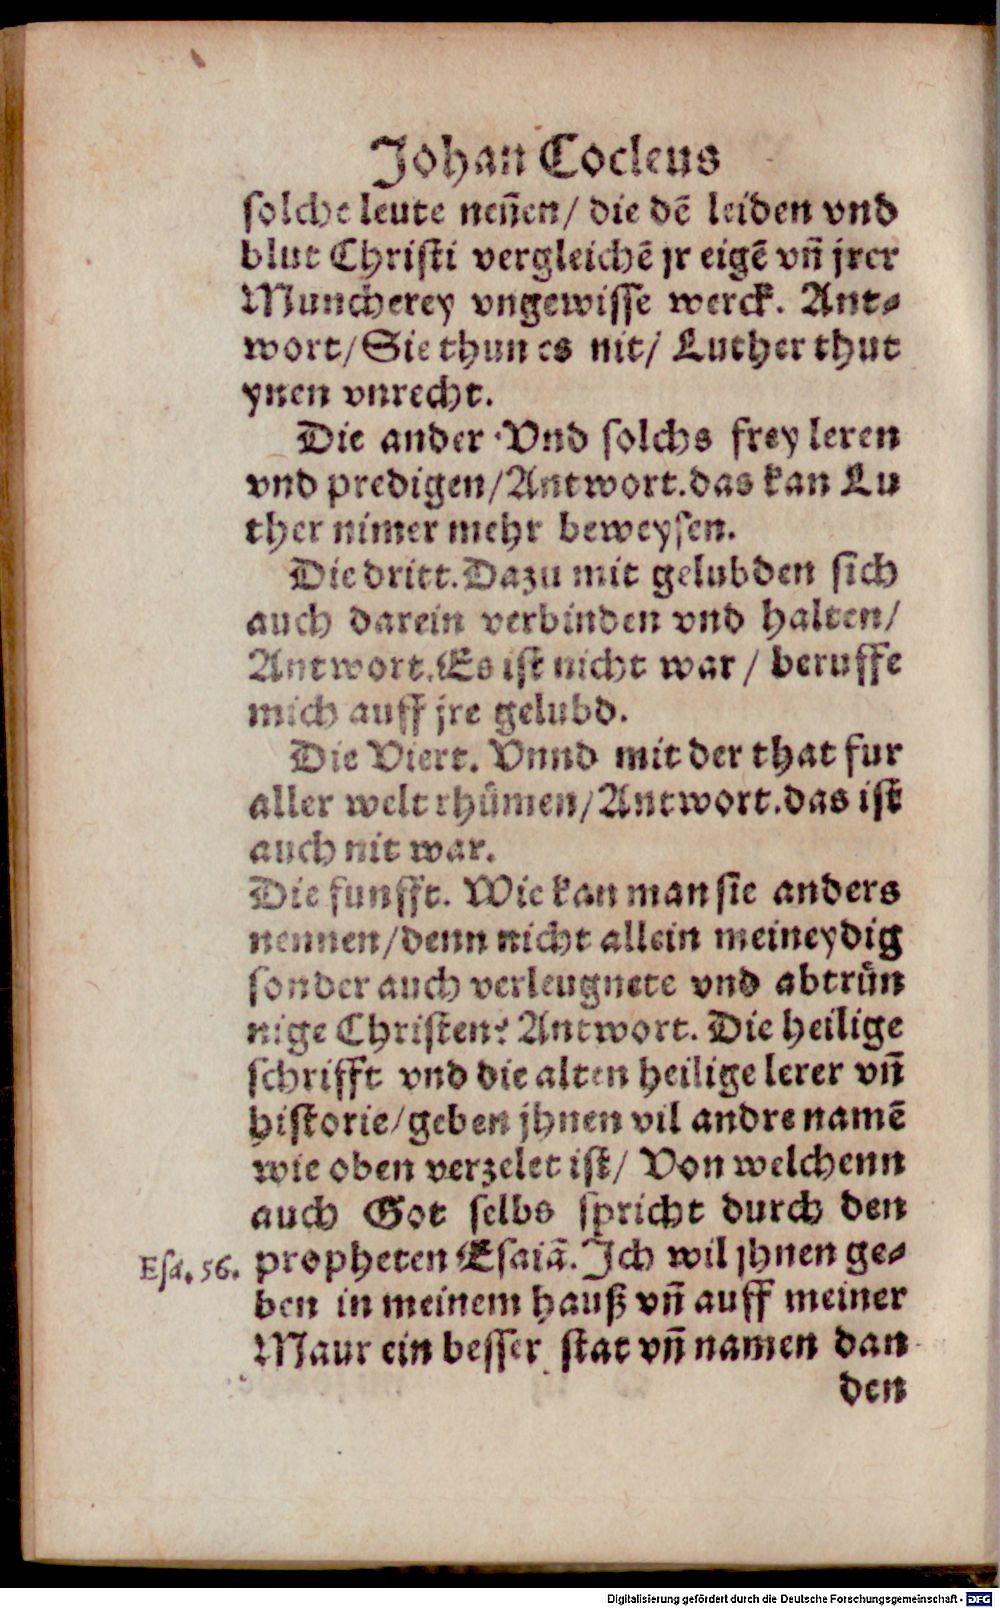 Johan Cocleus
solche leute neñen/ die dē leiden vnd
blut Christi vergleichē jr eigē vñ jrer
Muncherey vngewisse werck. Ant⸗
wort/ Sie thun es nit/ Luther thut
ynen vnrecht.
Die ander. Vnd solchs frey leren
vnd predigen/ Antwort. das kan Lu
ther nimer mehr beweysen.
Die dritt. Dazu mit gelubden sich
auch darein verbinden vnd halten/
Antwort. Es ist nicht war / beruffe
mich auff jre gelubd.
Die Viert. Vnnd mit der that fur
aller welt rhůmen/ Antwort. das ist
auch nit war.
Die funfft. Wie kan man sie anders
nennen/ denn nicht allein meineydig
sonder auch verleugnete vnd abtrůn
nige Christen? Antwort. Die heilige
schrifft vnd die alten heilige lerer vñ
historie/ geben jhnen vil andre namē
wie oben verzelet ist/ Von welchenn
auch Got selbs spricht durch den
Esa. 56. propheten Esaiā. Ich wil jhnen ge⸗
ben in meinem hauß vñ auff meiner
Maur ein besser stat vñ namen dan
den
Digitalisierung gefördert durch die Deutsche Forschungsgemeinschaft - DFG